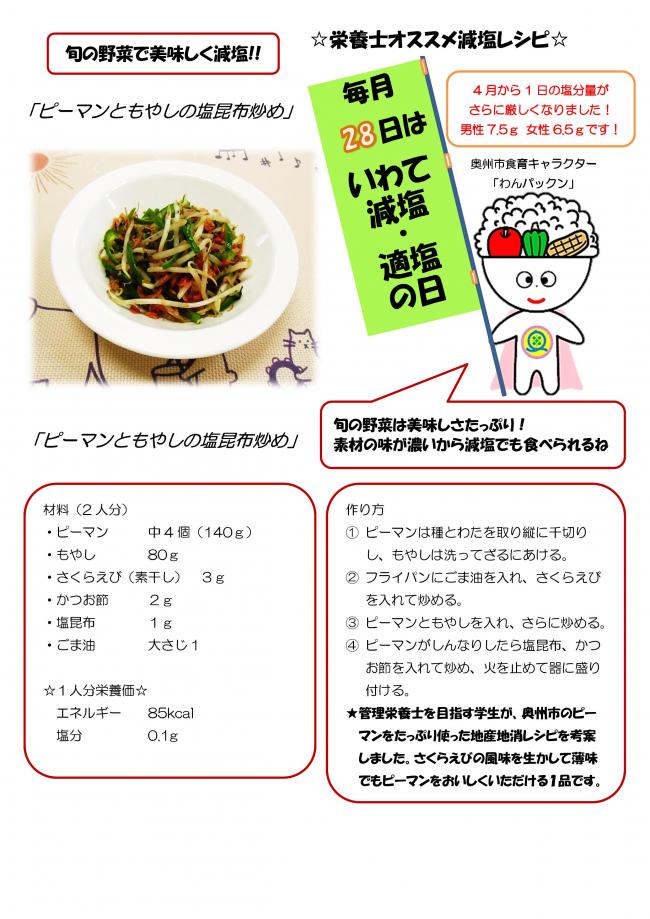 旬の野菜で美味しく減塩!!
☆栄養士オススメ減塩レシピ☆
「ピーマンともやしの塩昆布炒め」
毎月
28日は
いわて
減塩・
適塩
の日
4月から1日の塩分量が
さらに厳しくなりました！
男性7.5g 女性6.5gです！
奥州市食育キャラクター
「わんパックン」
旬の野菜は美味しさたっぷり！
素材の味が濃いから減塩でも食べられるね
「ピーマンともやしの塩昆布炒め」
材料（2人分）
・ピーマン 中4個（140g）
・もやし 80g
・さくらえび（素干し） 3g
・かつお節 2g
・塩昆布 1g
・ごま油 大さじ1
☆1人分栄養価☆
エネルギー 85kcal
塩分 0.1g
作り方
① ピーマンは種とわたを取り縦に千切り
し、もやしは洗ってざるにあける。
② フライパンにごま油を入れ、さくらえび
を入れて炒める。
③ ピーマンともやしを入れ、さらに炒める。
④ ピーマンがしんなりしたら塩昆布、かつ
お節を入れて炒め、火を止めて器に盛り
付ける。
★管理栄養士を目指す学生が、奥州市のピー
マンをたっぷり使った地産地消レシピを考案
しました。さくらえびの風味を生かして薄味
でもピーマンをおいしくいただける1品です。